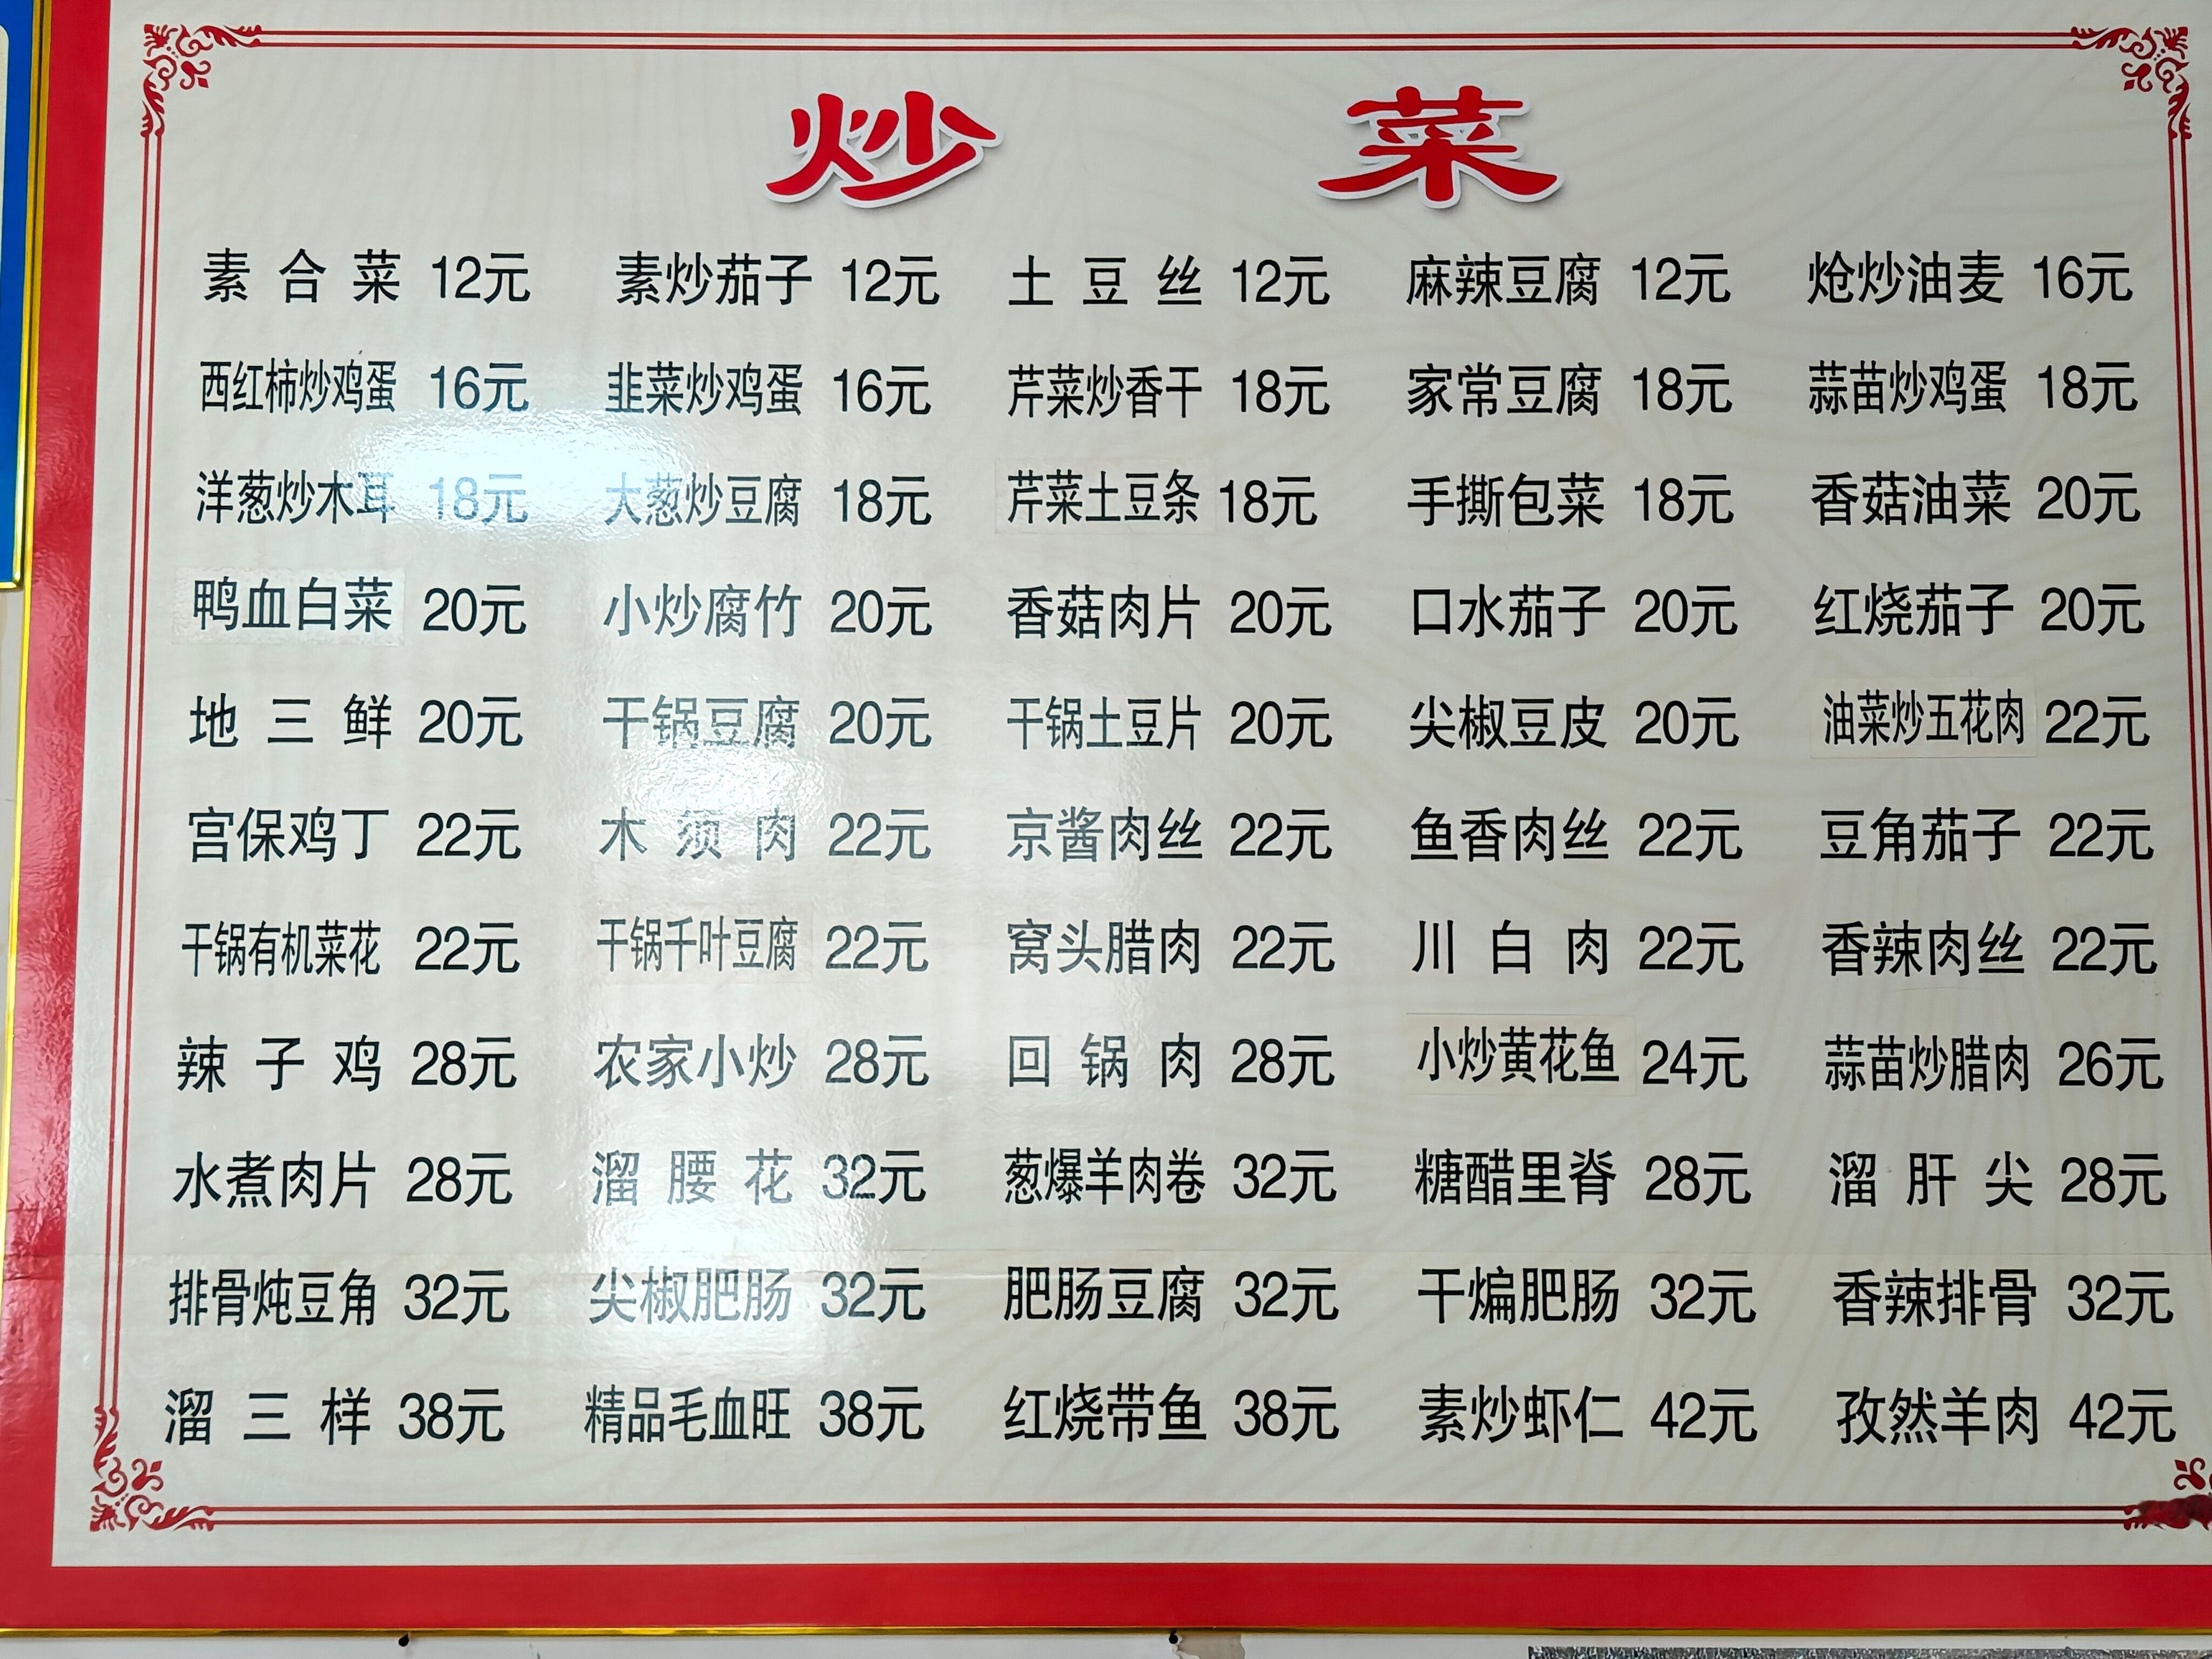 炒 菜
素合菜 12元 素炒茄子 12元 土豆丝 12元 麻辣豆腐 12元 炝炒油麦 16元
西红柿炒鸡蛋 16元 韭菜炒鸡蛋 16元 芹菜炒香干 18元 家常豆腐 18元 蒜苗炒鸡蛋 18元
洋葱炒木耳 18元 大葱炒豆腐 18元 芹菜土豆条 18元 手撕包菜 18元 香菇油菜 20元
鸭血白菜 20元 小炒腐竹 20元 香菇肉片 20元 口水茄子 20元 红烧茄子 20元
地三鲜 20元 干锅豆腐 20元 干锅土豆片 20元 尖椒豆皮 20元 油菜炒五花肉 22元
宫保鸡丁 22元 木须肉 22元 京酱肉丝 22元 鱼香肉丝 22元 豆角茄子 22元
干锅有机菜花 22元 干锅千叶豆腐 22元 窝头腊肉 22元 川白肉 22元 香辣肉丝 22元
辣子鸡 28元 农家小炒 28元 回锅肉 28元 小炒黄花鱼 24元 蒜苗炒腊肉 26元
水煮肉片 28元 溜腰花 32元 葱爆羊肉卷 32元 糖醋里脊 28元 溜肝尖 28元
排骨炖豆角 32元 尖椒肥肠 32元 肥肠豆腐 32元 干煸肥肠 32元 香辣排骨 32元
溜三样 38元 精品毛血旺 38元 红烧带鱼 38元 素炒虾仁 42元 孜然羊肉 42元